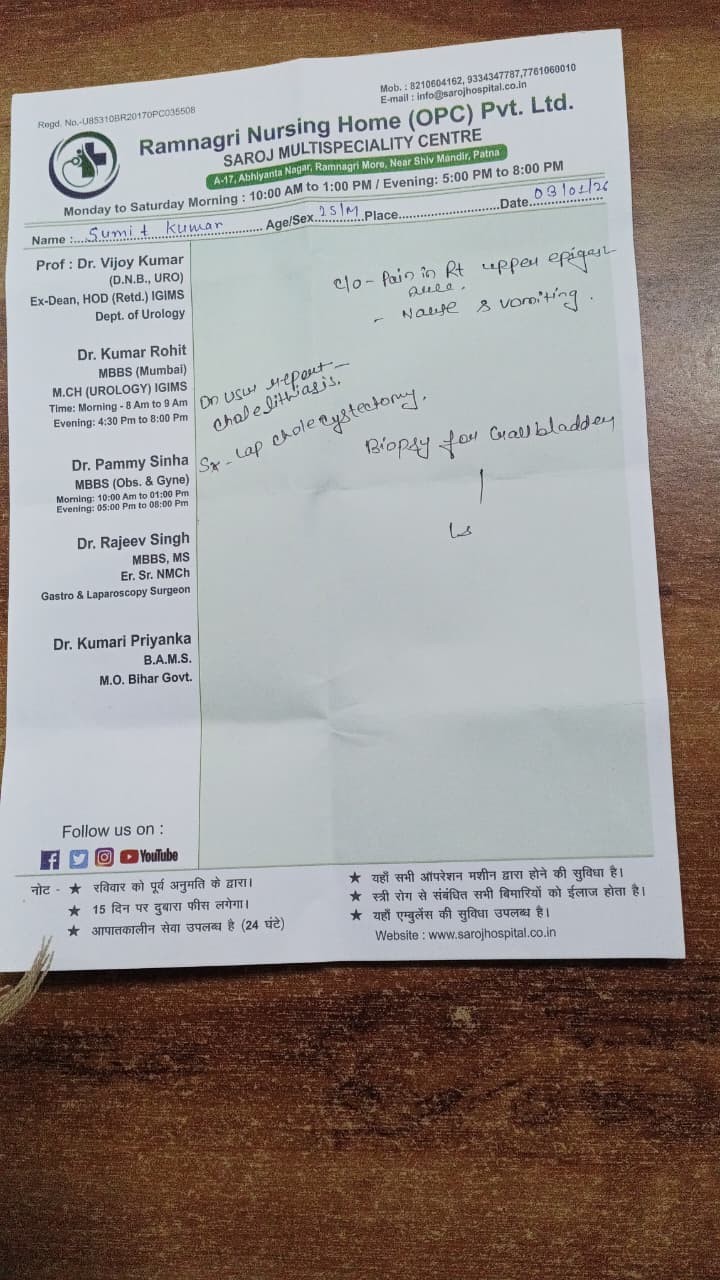 Regd. No.-U85310BR20170PC035508
Mob. : 8210604162, 9334347787,7761060010
E-mail : info@sarojhospital.co.in
Ramnagri Nursing Home (OPC) Pvt. Ltd.
SAROJ MULTISPECIALITY CENTRE
A-17, Abhiyanta Nagar, Ramnagri More, Near Shiv Mandir, Patna
Monday to Saturday Morning : 10:00 AM to 1:00 PM / Evening: 5:00 PM to 8:00 PM
Name :.... Sumit Kumar ............ Age/Sex 25/M Place............................Date 03/01/26
Prof : Dr. Vijoy Kumar
(D.N.B., URO)
Ex-Dean, HOD (Retd.) IGIMS
Dept. of Urology
Dr. Kumar Rohit
MBBS (Mumbai)
M.CH (UROLOGY) IGIMS
Time: Morning - 8 Am to 9 Am
Evening: 4:30 Pm to 8:00 Pm
Dr. Pammy Sinha
MBBS (Obs. & Gyne)
Morning: 10:00 Am to 01:00 Pm
Evening: 05:00 Pm to 08:00 Pm
Dr. Rajeev Singh
MBBS, MS
Er. Sr. NMCh
Gastro & Laparoscopy Surgeon
Dr. Kumari Priyanka
B.A.M.S.
M.O. Bihar Govt.
c/o - Pain in Rt upper epigast
- & vomiting.
On report -
cholelithiasis.
Sx - Lap cholecystectomy.
Biopsy for Gallbladder
Follow us on :
YouTube
नोट - ★ रविवार को पूर्व अनुमति के द्वारा।
★ 15 दिन पर दुबारा फीस लगेगा।
★ आपातकालीन सेवा उपलब्ध है (24 घंटे)
★ यहाँ सभी ऑपरेशन मशीन द्वारा होने की सुविधा है।
★ स्त्री रोग से संबंधित सभी बिमारियों को ईलाज होता है।
★ यहाँ एम्बुलेंस की सुविधा उपलब्ध है।
Website : www.sarojhospital.co.in